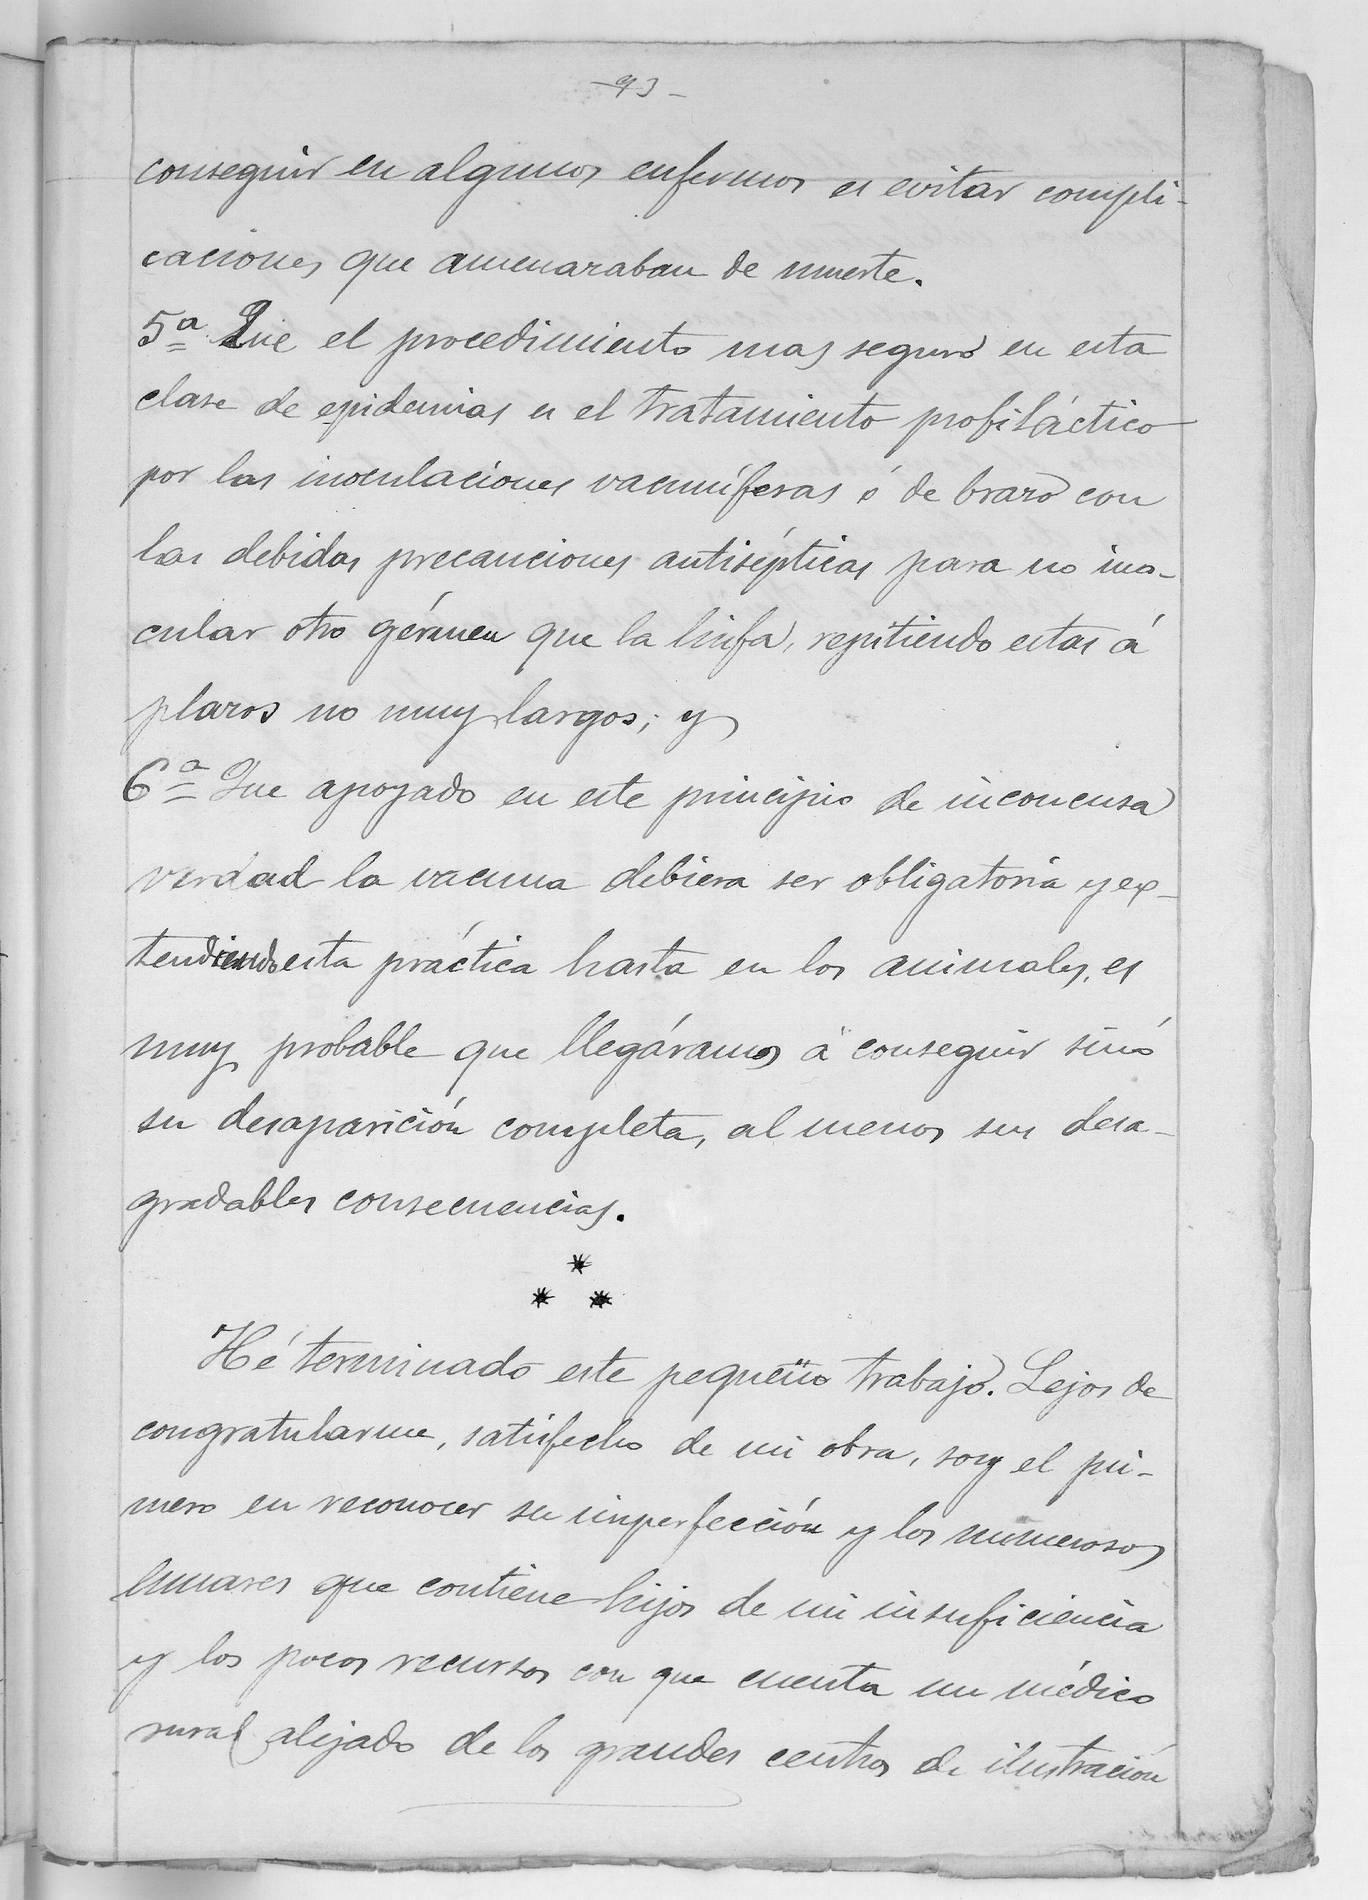 -93-
conseguir en algunos enfermos es evitar compli-
caciones que amenazaban de muerte.
5ª Que el procedimiento mas seguro en esta
clase de epidemias es el tratamiento profiláctico
por las inoculaciones vacuníferas ó de brazo con
las debidas precauciones antisépticas para no ino-
cular otro gérmen que la linfa, repitiendo estas á
plazos no muy largos; y
6ª Que apoyado en este principio de inconcusa
verdad la vacuna debiera ser obligatoria y ex-
tendiendo esta práctica hasta en los animales, es
muy probable que llegáramos á conseguir sinó
su desaparición completa, al menos sus desa-
gradables consecuencias.
*
* *
Hé terminado este pequeño trabajo. Lejos de
congratularme, satisfecho de mi obra, soy el pri-
mero en reconocer su imperfección y los numerosos
lunares que contiene hijos de mi insuficiencia
y los pocos recursos con que cuenta un médico
rural alejado de los grandes centros de ilustración